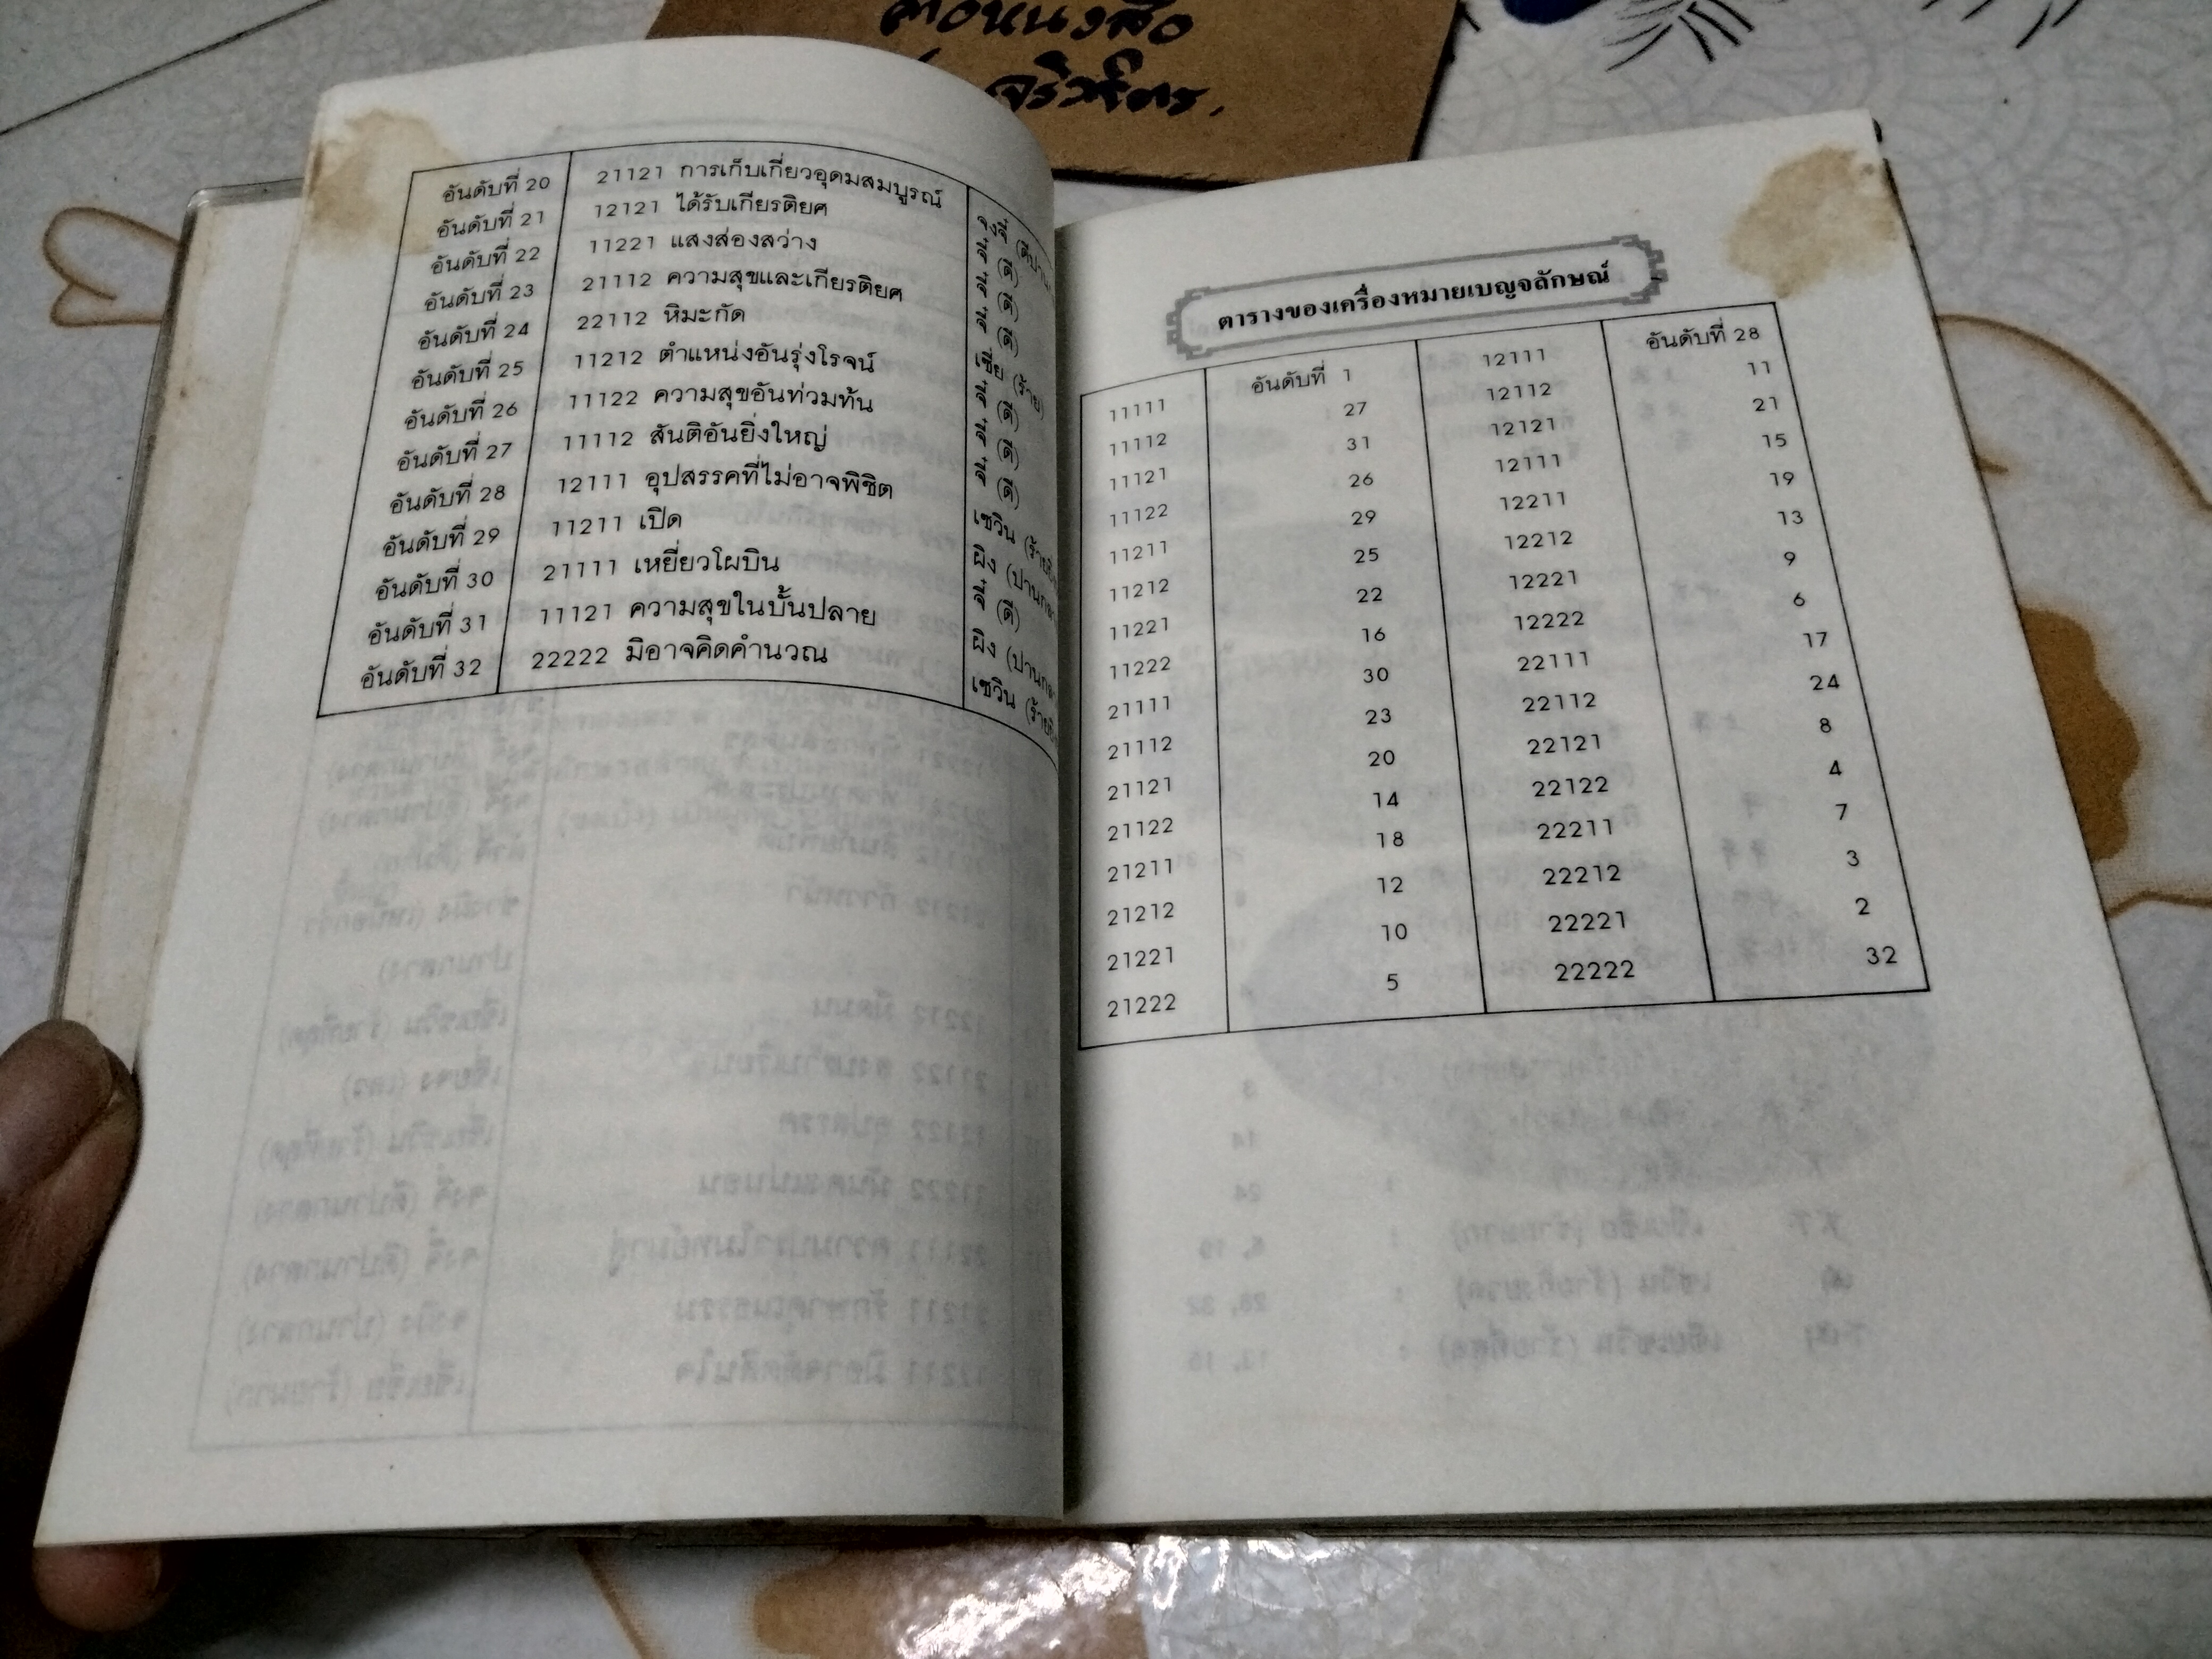 อันดับที่ 20 21121 การเก็บเกี่ยวอุดมสมบูรณ์
อันดับที่ 21 12121 ได้รับเกียรติยศ
อันดับที่ 22 11221 แสงส่องสว่าง
อันดับที่ 23 21112 ความสุขและเกียรติยศ
อันดับที่ 24 22112 หิมะกัด
อันดับที่ 25 11212 ตำแหน่งอันรุ่งโรจน์
อันดับที่ 26 11122 ความสุขอันท่วมท้น
อันดับที่ 27 11112 สันติอันยิ่งใหญ่
อันดับที่ 28 12111 อุปสรรคที่ไม่อาจพิชิต
อันดับที่ 29 11211 เปิด
อันดับที่ 30 21111 เหยี่ยวโผบิน
อันดับที่ 31 11121 ความสุขในบั้นปลาย
อันดับที่ 32 22222 มิอาจคิดคำนวณ
ตารางของเครื่องหมายเบญจลักษณ์
11111 อันดับที่ 1 12111 อันดับที่ 28
11112 27 12112 11
11121 31 12121 21
11122 26 12111 15
11211 29 12211 19
11212 25 12212 13
11221 22 12221 9
11222 16 12222 6
21111 30 22111 17
21112 23 22112 24
21121 20 22121 8
21122 14 22122 4
21211 18 22211 7
21212 12 22212 3
21221 10 22221 2
21222 5 22222 32